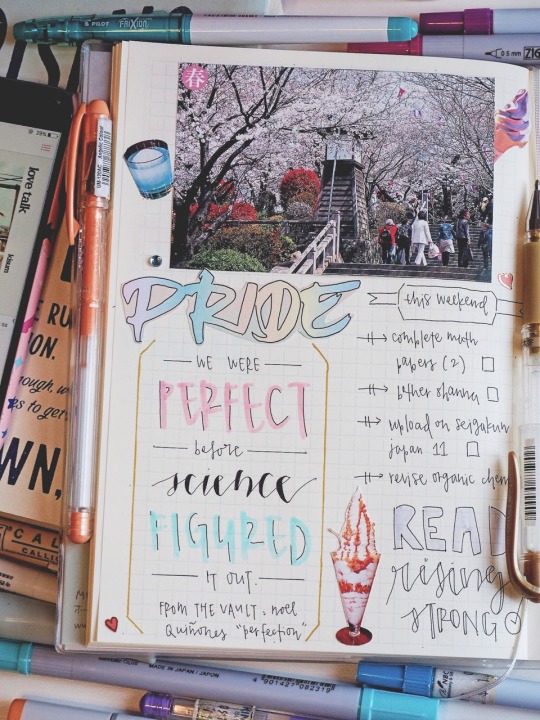 PILOT FRIXION
0.5 mm ZIG
春
39%
love talk
khum
PRIDE
WE WERE
PERFECT
before
science
FIGURED
IT OUT.
FROM THE VAULT: noel
Quiñones "perfection"
this weekend
complete math
papers (2)
upload on
japan 11
revise organic chem
READ
rising
STRONG
ON.
ough, w
s to get
WN,
CAL
CALLI
MADE IN JAPAN / JAPON
4 901427 082319